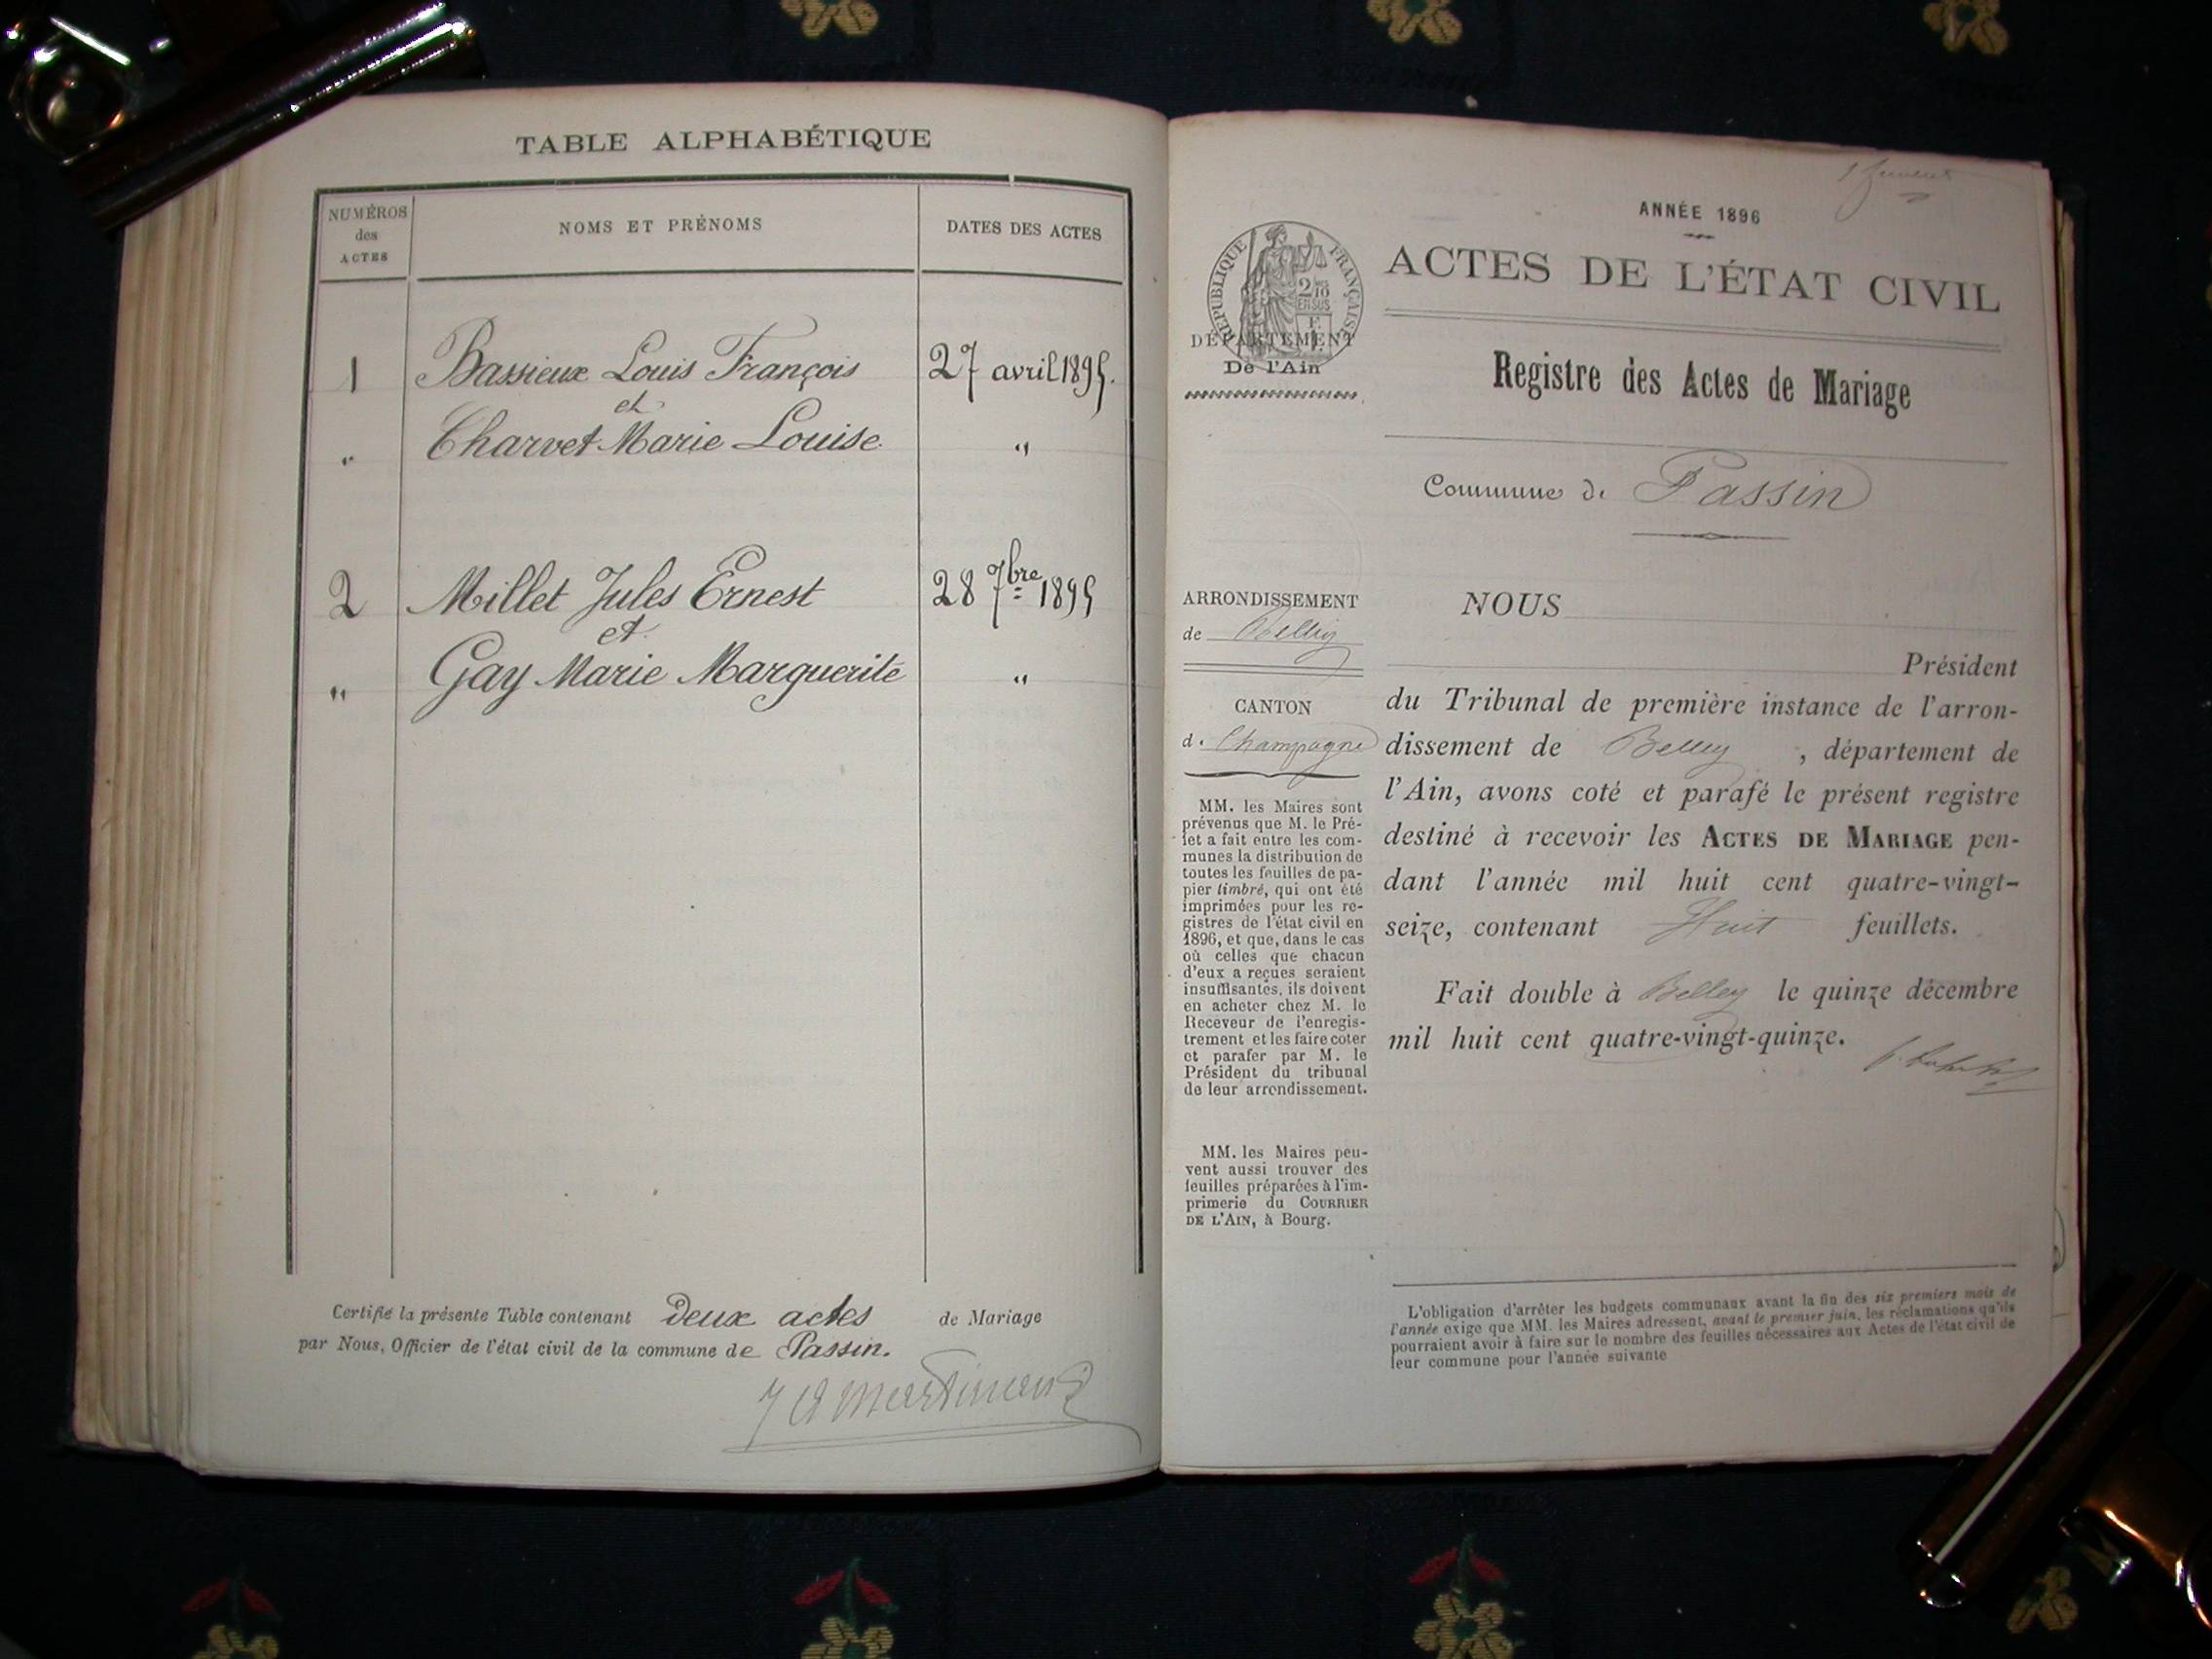 TABLE ALPHABÉTIQUE
NUMÉROS
des
ACTES
NOMS ET PRÉNOMS
DATES DES ACTES
1 Bassieux Louis François 27 avril 1895.
et
" Charvet Marie Louise "
2 Millet Jules Ernest 28 7bre 1895
et
" Gay Marie Marguerite "
Certifié la présente Table contenant Deux actes de Mariage
par Nous, Officier de l'état civil de la commune de Passin.
ANNÉE 1896
ACTES DE L'ÉTAT CIVIL
Registre des Actes de Mariage
Commune de Passin
RÉPUBLIQUE FRANÇAISE
DÉPARTEMENT
De l'Ain
ARRONDISSEMENT
de Belley
CANTON
de Champagne
MM. les Maires sont
prévenus que M. le Pré-
fet a fait entre les com-
munes la distribution de
toutes les feuilles de pa-
pier timbré, qui ont été
imprimées pour les re-
gistres de l'état civil en
1896, et que, dans le cas
où celles que chacun
d'eux a reçues seraient
insuffisantes, ils doivent
en acheter chez M. le
Receveur de l'enregis-
trement et les faire coter
et parafer par M. le
Président du tribunal
de leur arrondissement.
MM. les Maires peu-
vent aussi trouver des
feuilles préparées à l'im-
primerie du COURRIER
DE L'AIN, à Bourg.
NOUS
Président
du Tribunal de première instance de l'arron-
dissement de Belley, département de
l'Ain, avons coté et parafé le présent registre
destiné à recevoir les ACTES DE MARIAGE pen-
dant l'année mil huit cent quatre-vingt-
seize, contenant Huit feuillets.
Fait double à Belley le quinze décembre
mil huit cent quatre-vingt-quinze.
L'obligation d'arrêter les budgets communaux avant la fin des six premiers mois de
l'année exige que MM. les Maires adressent, avant le premier juin, les réclamations qu'ils
pourraient avoir à faire sur le nombre des feuilles nécessaires aux Actes de l'état civil de
leur commune pour l'année suivante